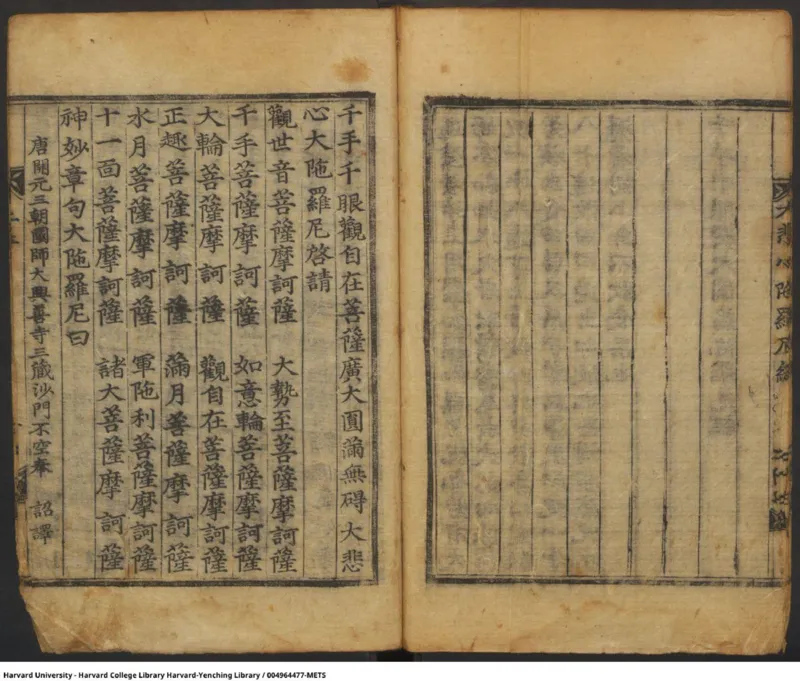 大悲心陁羅尼經
千手千眼觀自在菩薩廣大圓滿無碍大悲
心大陁羅尼啓請
觀世音菩薩摩訶薩 大勢至菩薩摩訶薩
千手菩薩摩訶薩 如意輪菩薩摩訶薩
大輪菩薩摩訶薩 觀自在菩薩摩訶薩
正趣菩薩摩訶薩 滿月菩薩摩訶薩
水月菩薩摩訶薩 軍陁利菩薩摩訶薩
十一面菩薩摩訶薩 諸大菩薩摩訶薩
神妙章句大陁羅尼曰
唐開元三朝國師大興善寺三藏沙門不空奉 詔譯
Harvard University - Harvard College Library Harvard-Yenching Library / 004964477-METS